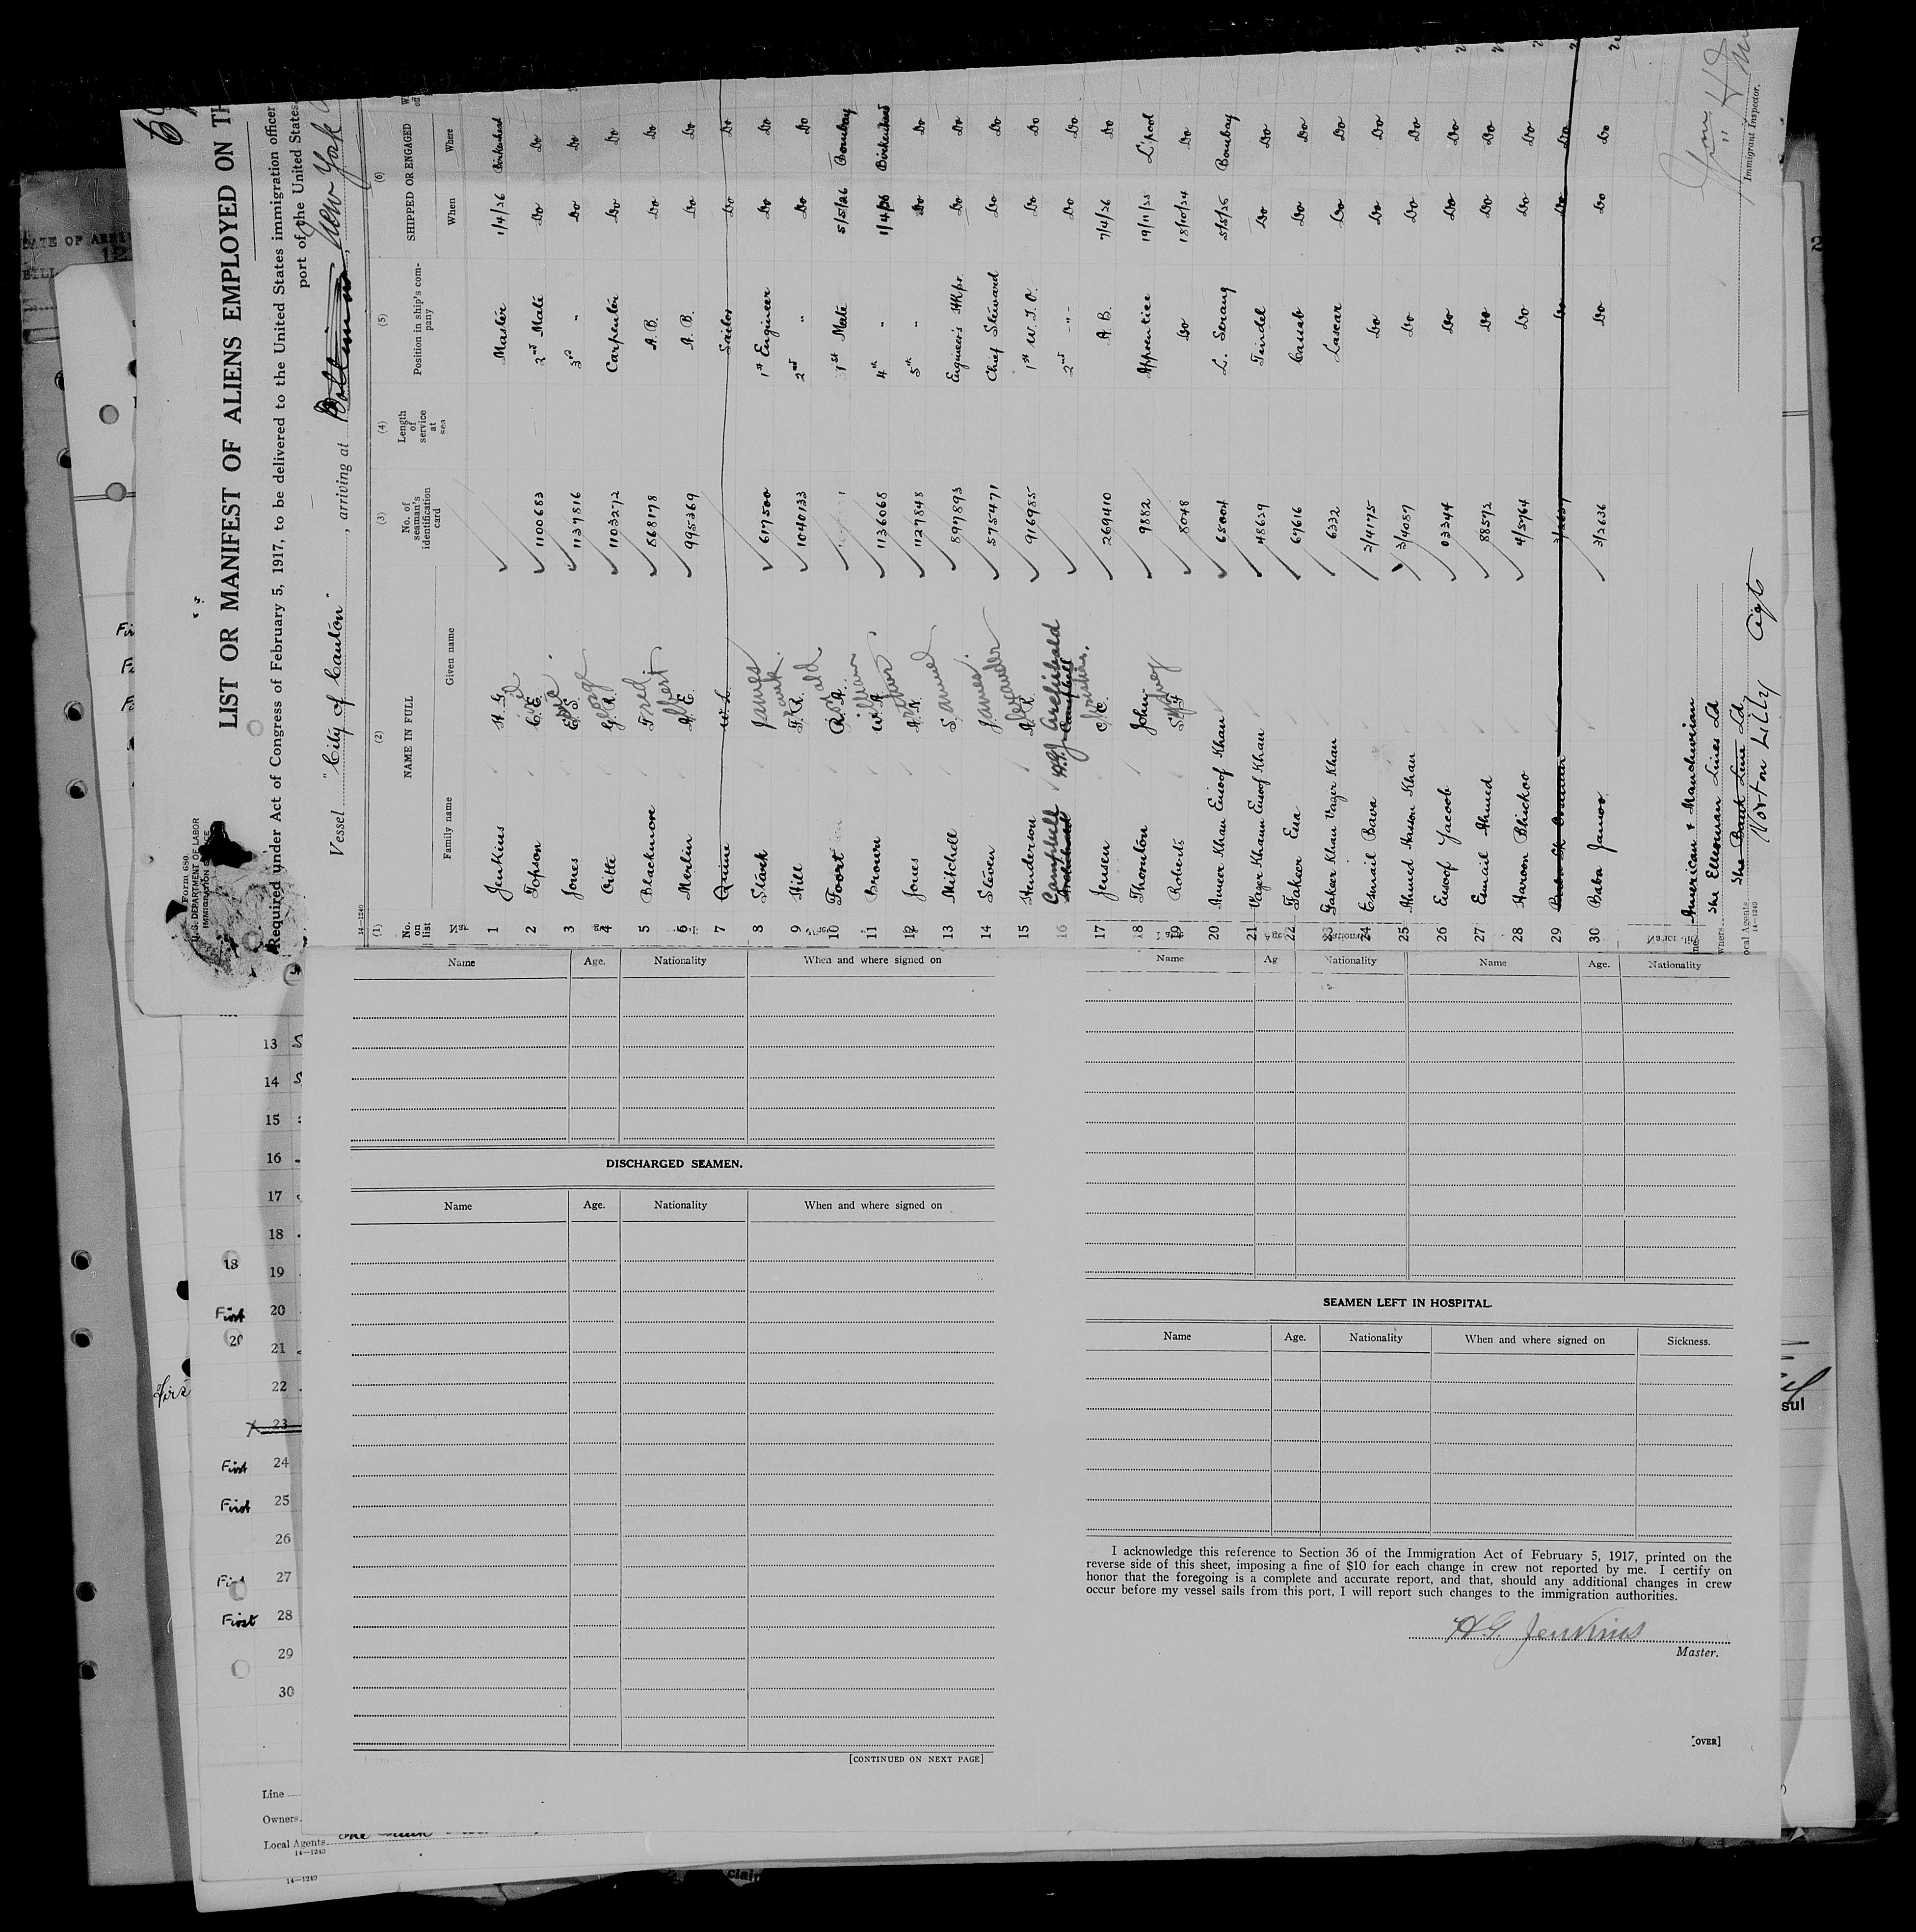 Form 680
U. S. DEPARTMENT OF LABOR
IMMIGRATION SERVICE
LIST OR MANIFEST OF ALIENS EMPLOYED ON TH
Required under Act of Congress of February 5, 1917, to be delivered to the United States immigration officer
port of the United States
Vessel "City of Canton", arriving at Baltimore, New York
14—1240
(1) (2) (3) (4) (5) (6)
No. on list NAME IN FULL No. of seaman's identification card Length of service at sea Position in ship's company SHIPPED OR ENGAGED
Family name Given name When Where
1 Jenkins H. G. Master 1/4/26 Birkenhead
2 Topson C. E. 1100683 2nd Mate Do Do
3 Jones E. S. 1137816 3rd " Do Do
4 George 1103272 Carpenter Do Do
5 Blackmore Fred 868178 A. B. Do Do
6 Merlin Albert E. 995369 A. B. Do Do
7 Quine Sailor Do Do
8 Stark James 617500 1st Engineer Do Do
9 Hill Frank R. 1040133 2nd " Do Do
10 Toort 1st Mate 5/5/26 Bombay
11 Brown William 1136068 4th " 1/4/26 Birkenhead
12 Jones Arthur 1127848 5th " Do Do
13 Mitchell Samuel 897893 Engineer's Do Do
14 Steven James 575471 Chief Steward Do Do
15 Henderson Alexander 916985 1st W. T. O. Do Do
16 Campbell Archibald 2nd -"- Do Do
17 Jensen Christian 269410 A. B. 7/4/26 Do
18 Thornton John 9882 Apprentice 19/11/23 L'pool
19 Roberts 8048 Do 18/10/24 Do
20 Ameer Khan Eusoof Khan 65004 L. Serang 5/5/26 Bombay
21 Eusoof Khan 48629 Tindel Do Do
22 Fakeer Esa 67616 Do Do
23 Fakeer Khan Vazir Khan 6332 Lascar Do Do
24 Esmail Bava 2/4175 Do Do Do
25 Ahmed Hassan Khan 3/4087 Do Do Do
26 Eusoof Yacoob 03344 Do Do Do
27 Esmail Ahmed 88572 Do Do Do
28 Haroon Bhickoo 4/5764 Do Do Do
29 Do Do Do
30 Baba Janoo 3/2636 Do Do Do
American & Manchurian
The Ellerman Lines Ld
The Bank Line Ld
ocal Agents Norton Lilly Agts
14—1240
Immigrant Inspector.
Name Age. Nationality When and where signed on
DISCHARGED SEAMEN.
Name Age. Nationality When and where signed on
[CONTINUED ON NEXT PAGE]
Name Ag Nationality Name Age. Nationality
SEAMEN LEFT IN HOSPITAL.
Name Age. Nationality When and where signed on Sickness.
I acknowledge this reference to Section 36 of the Immigration Act of February 5, 1917, printed on the
reverse side of this sheet, imposing a fine of $10 for each change in crew not reported by me. I certify on
honor that the foregoing is a complete and accurate report, and that, should any additional changes in crew
occur before my vessel sails from this port, I will report such changes to the immigration authorities.
H.G. Jenkins
Master.
[OVER]
13
14
15
16
17
18
18
19
First 20
20
21
22
23
First 24
First 25
26
First 27
First 28
29
30
Line
Owners
Local Agents
14—1240
14—1240
sul